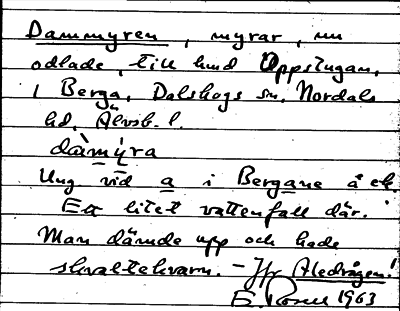 Dammyren, myrar, nu
odlade, till hmd Uppstugan,
i Berga, Dalskogs sn, Nordals
hd, Älvsb. l.
dàmýra
Ung vid a i Bergane å ek.
Ett litet vattenfall där.
Man dämde upp och hade
skvaltekvarn. - Jfr Aledrågen!
E. Rosell 1963